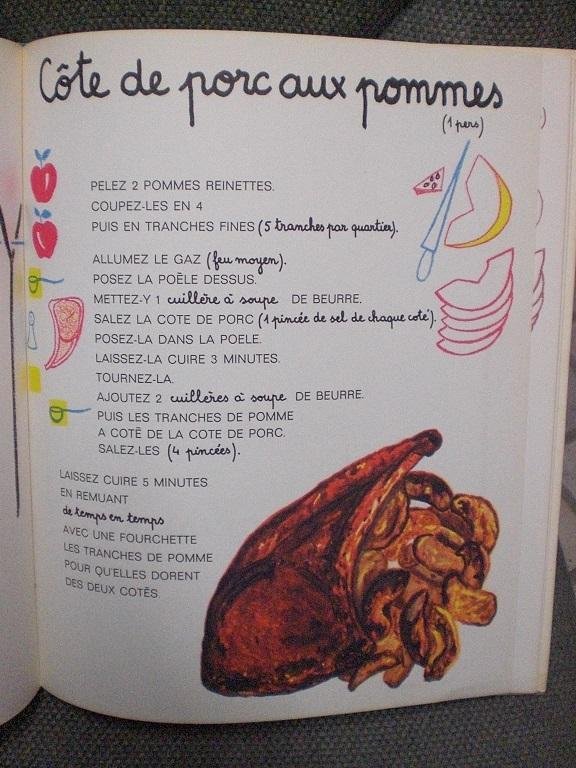 Côte de porc aux pommes
(1 pers)
PELEZ 2 POMMES REINETTES.
COUPEZ-LES EN 4
PUIS EN TRANCHES FINES (5 tranches par quartier).
ALLUMEZ LE GAZ (feu moyen).
POSEZ LA POÊLE DESSUS.
METTEZ-Y 1 cuillère à soupe DE BEURRE.
SALEZ LA COTE DE PORC (1 pincée de sel de chaque coté).
POSEZ-LA DANS LA POELE.
LAISSEZ-LA CUIRE 3 MINUTES.
TOURNEZ-LA.
AJOUTEZ 2 cuillères à soupe DE BEURRE.
PUIS LES TRANCHES DE POMME
A COTÉ DE LA COTE DE PORC.
SALEZ-LES (4 pincées).
LAISSEZ CUIRE 5 MINUTES
EN REMUANT
de temps en temps
AVEC UNE FOURCHETTE
LES TRANCHES DE POMME
POUR QU'ELLES DORENT
DES DEUX COTÉS.